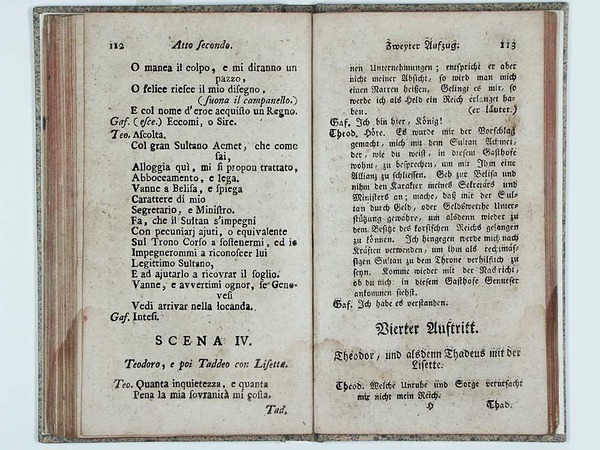 112 Atto secondo.
O manca il colpo, e mi diranno un
pazzo,
O felice riesce il mio disegno,
(suona il campanello.)
E col nome d'eroe acquisto un Regno.
Gaf. (esce.) Eccomi, o Sire.
Teo. Ascolta.
Col gran Sultano Acmet, che come
sai,
Alloggia quì, mi si propon trattato,
Abboccamento, e lega.
Vanne a Belisa, e spiega
Carattere di mio
Segretario, e Ministro.
Fa, che il Sultan s'impegni
Con pecuniarj ajuti, o equivalente
Sul Trono Corso a sostenermi, ed io
Impegnerommi a riconoscer lui
Legittimo Sultano,
E ad ajutarlo a ricovrar il soglio.
Vanne, e avvertimi ognor, se Geno-
vesi
Vedi arrivar nella locanda.
Gaf. Intesi.
SCENA IV.
Teodoro, e poi Taddeo con Lisetta.
Teo. Quanta inquietezza, e quanta
Pena la mia sovranità mi costa.
Tad.
Zweyter Aufzug. 113
nen Unternehmungen; entspricht er aber
nicht meiner Absicht, so wird man mich
einen Narren heißen. Gelingt es mir, so
werde ich als Held ein Reich erlanget ha-
ben. (er läutet.)
Gaf. Ich bin hier, König!
Theod. Höre. Es wurde mir der Vorschlag
gemacht, mich mit dem Sultan Achmet,
der, wie du weist, in diesem Gasthofe
wohnt, zu besprechen, um mit Ihm eine
Allianz zu schliessen. Geh zur Belisa und
nihm den Karakter meines Sekretärs und
Ministers an; mache, daß mir der Sul-
tan durch Geld, oder Geldswerthe Unter-
stützung gewähre, um alsdenn wieder zu
dem Besitze des korsischen Reichs gelangen
zu können. Ich hingegen werde mich nach
Kräften verwenden, um ihm als rechtmäs-
sigen Sultan zu dem Throne verhilflich zu
seyn. Komme wieder mit der Nachricht,
ob du nicht in diesem Gasthofe Genueser
ankommen siehst.
Gaf. Ich habe es verstanden.
Vierter Auftritt.
Theodor, und alsdenn Thadeus mit der
Lisette.
Theod. Welche Unruhe und Sorge verursacht
mir nicht mein Reich.
H Thad.